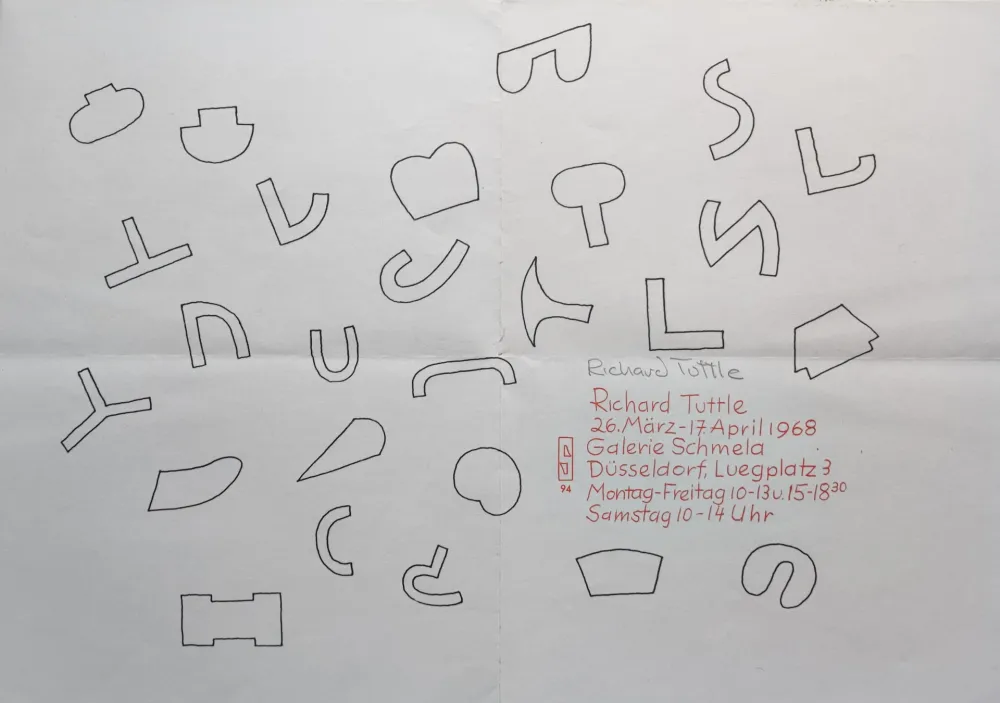 Richard Tuttle
Richard Tuttle
26. März-17. April 1968
Galerie Schmela
Düsseldorf, Luegplatz 3
94
Montag-Freitag 10-13 u. 15-18³⁰
Samstag 10-14 Uhr